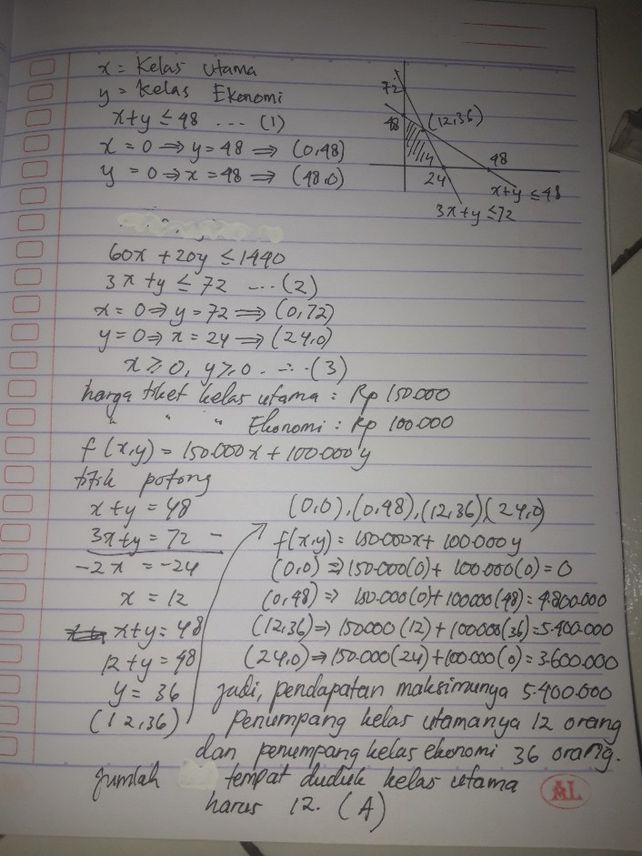 x = Kelas utama
y = Kelas Ekonomi
x+y ≤ 48 .... (1)
x = 0 ⇒ y = 48 ⇒ (0,48)
y = 0 ⇒ x = 48 ⇒ (48,0)
72
48
(12,36)
48
24
x+y ≤ 48
3x+y ≤ 72
60x + 20y ≤ 1440
3x + y ≤ 72 ....(2)
x = 0 ⇒ y = 72 ⇒ (0,72)
y = 0 ⇒ x = 24 ⇒ (24,0)
x ≥ 0, y ≥ 0 ....(3)
harga tiket kelas utama : Rp 150.000
" " " Ekonomi : Rp 100.000
f(x,y) = 150.000x + 100.000y
titik potong
x + y = 48
3x+y = 72 -
-2x = -24
x = 12
x+y = 48
12 + y = 48
y = 36
(12,36)
(0,0), (0,48), (12,36)(24,0)
f(x,y) = 150.000x + 100.000y
(0,0) ⇒ 150.000(0) + 100.000(0) = 0
(0,48) ⇒ 150.000(0) + 100.000(48) = 4.800.000
(12,36) ⇒ 150.000(12) + 100.000(36) = 5.400.000
(24,0) ⇒ 150.000(24) + 100.000(0) = 3.600.000
jadi, pendapatan maksimunya 5.400.000
Penumpang kelas utamanya 12 orang
dan penumpang kelas ekonomi 36 orang.
Jumlah tempat duduk kelas utama
harus 12. (A)
AL